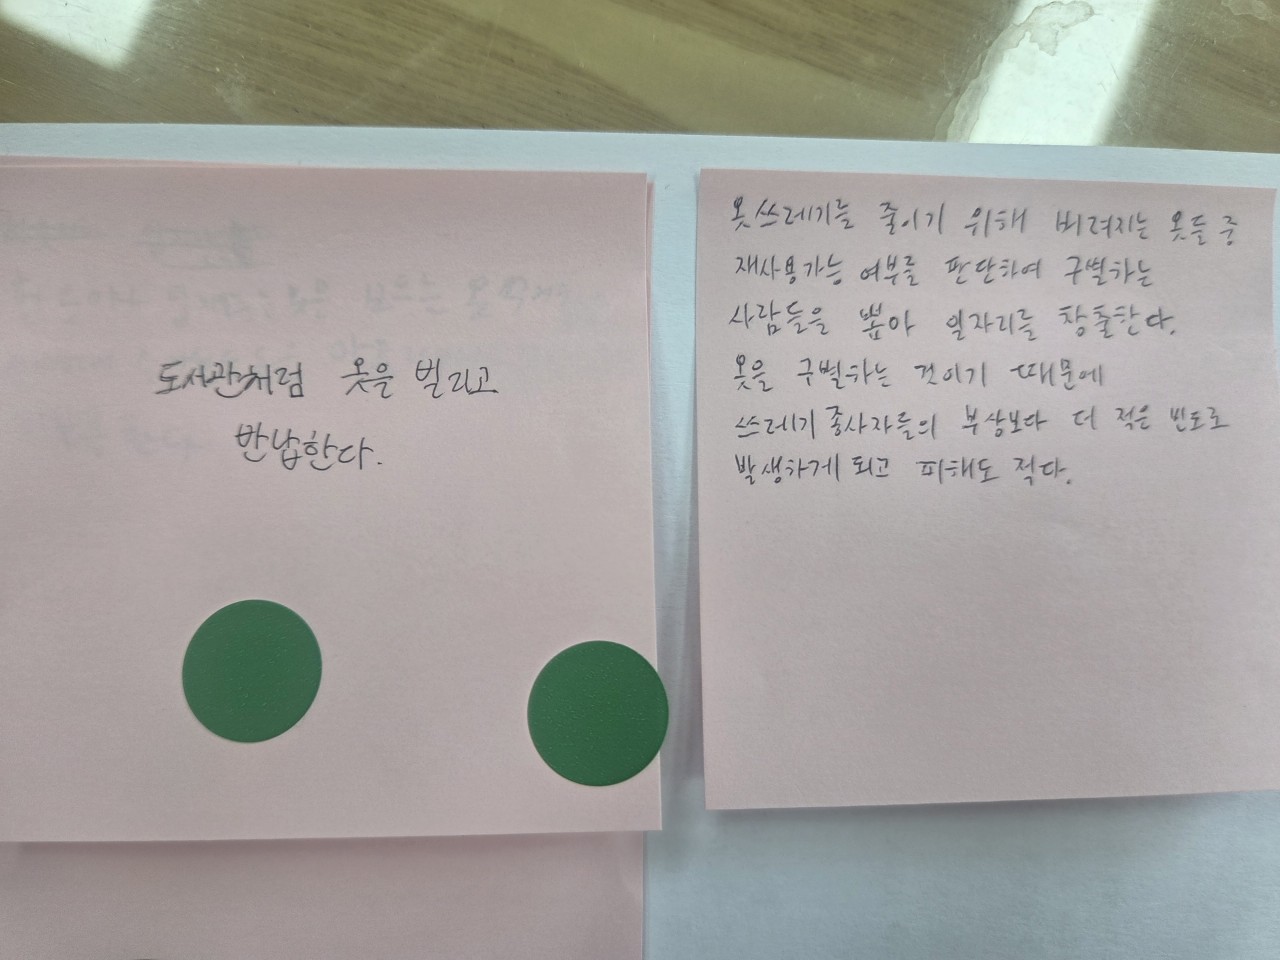 도서관처럼 옷을 빌리고
반납한다.
옷쓰레기를 줄이기 위해 버려지는 옷들 중
재사용가능 여부를 판단하여 구별하는
사람들을 뽑아 일자리를 창출한다.
옷을 구별하는 것이기 때문에
쓰레기 종사자들의 부상보다 더 적은 빈도로
발생하게 되고 피해도 적다.